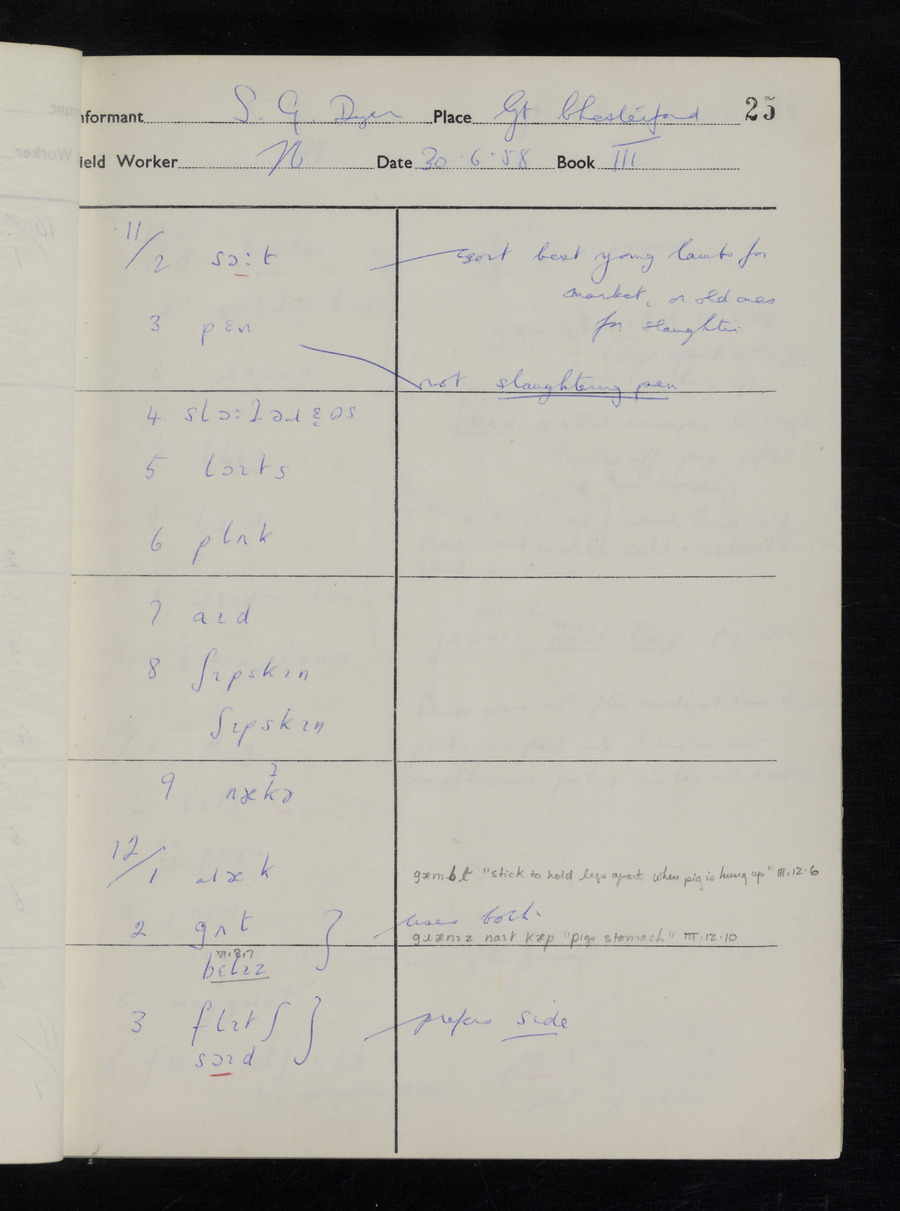 Informant S. G. Dyer Place Gt Chesterford 25
Field Worker N Date 30·6·58 Book III
11/2 sɔːt sort best young lambs for
market, or old ones
3 pɛn for slaughter
not slaughtering pen
4
5 lɔɪts
6 plʌk
7 aɪd
8 ʃɪpskɪn
ʃɪpskɪn
9 nækə
12/1 ɹæk gæmbḷ "stick to hold legs apart when pig is hung up" III.12.6
2 gʌt uses both.
gɹænɪz naɪt kæp "pigs stomach" III.12.10
VI.8.7
bɛlɪz
3 flɪtʃ prefers side
sɔɪd